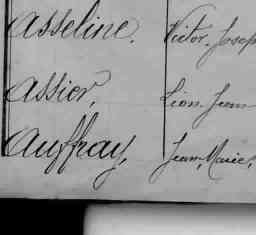 Asseline. Victor. Josep
Assior, Léon. Jean
Auffray, Jean, Marie,